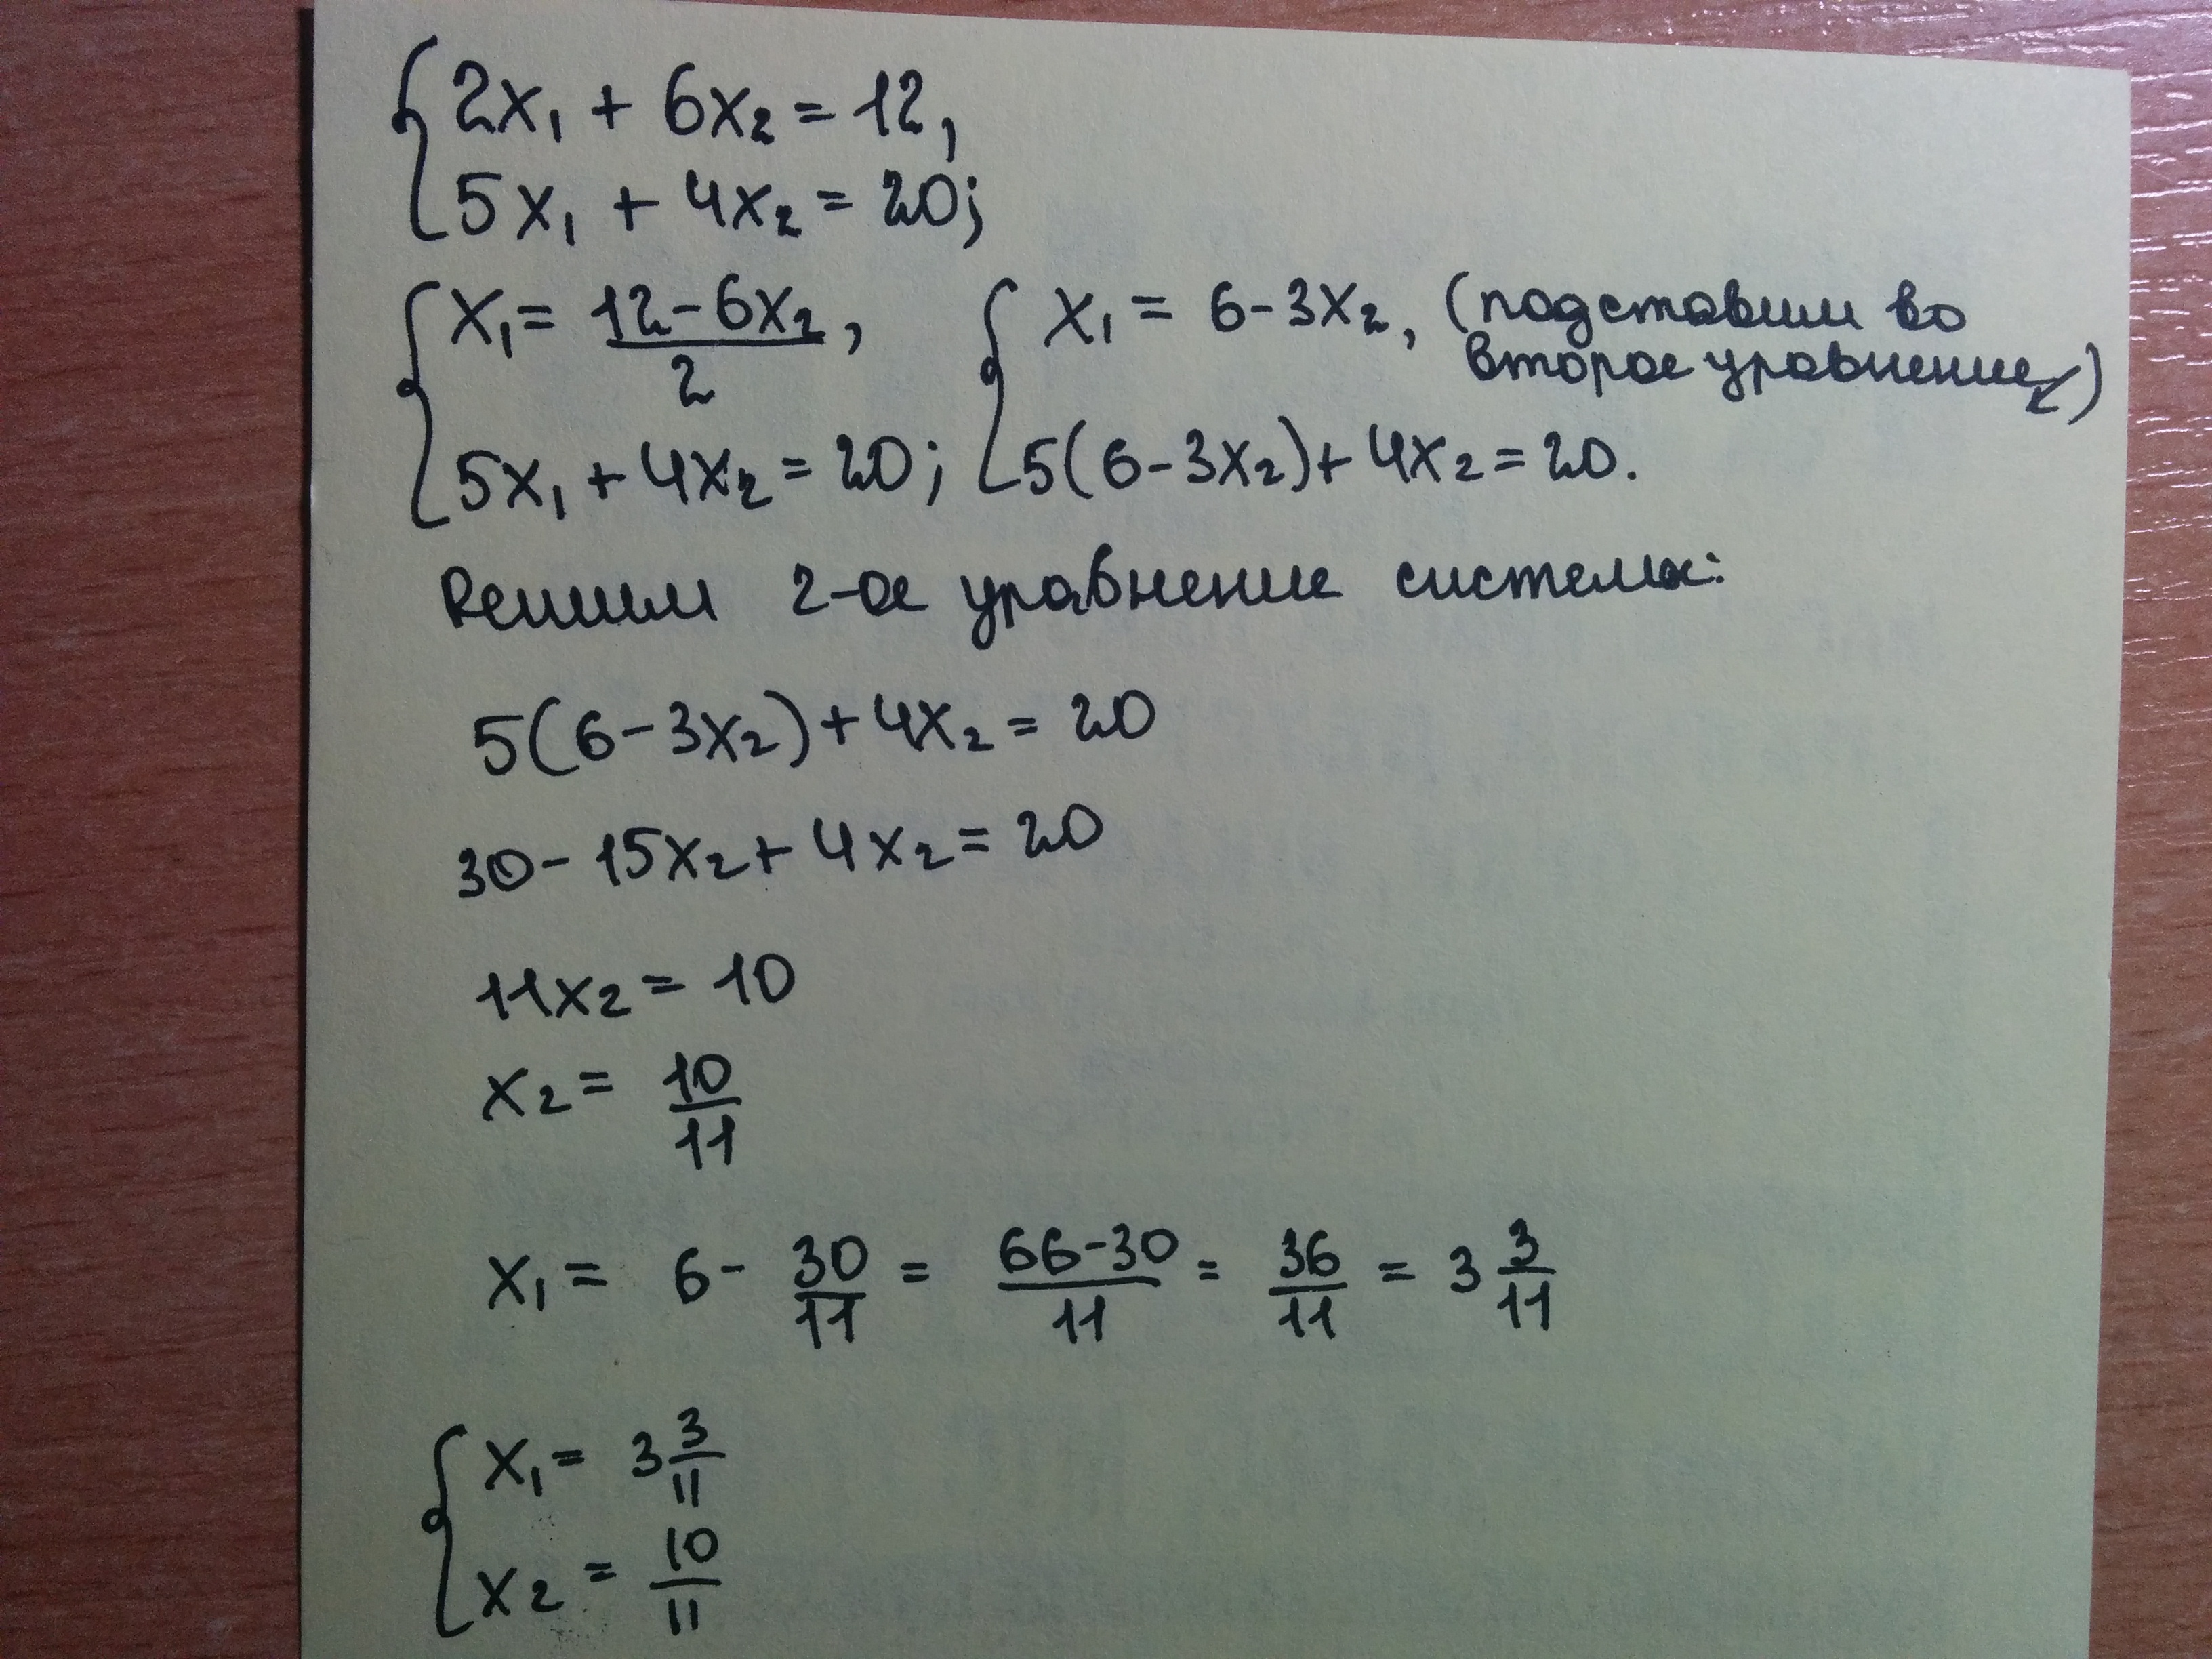 { 2x₁ + 6x₂ = 12,
5x₁ + 4x₂ = 20;
{ x₁ = (12-6x₂)/2, { x₁ = 6-3x₂, (подставим во
второе уравнение↙)
5x₁ + 4x₂ = 20; 5(6-3x₂)+4x₂ = 20.
Решим 2-ое уравнение системы:
5(6-3x₂)+4x₂ = 20
30-15x₂+4x₂ = 20
11x₂ = 10
x₂ = 10/11
x₁ = 6 - 30/11 = (66-30)/11 = 36/11 = 3 3/11
{ x₁ = 3 3/11
x₂ = 10/11